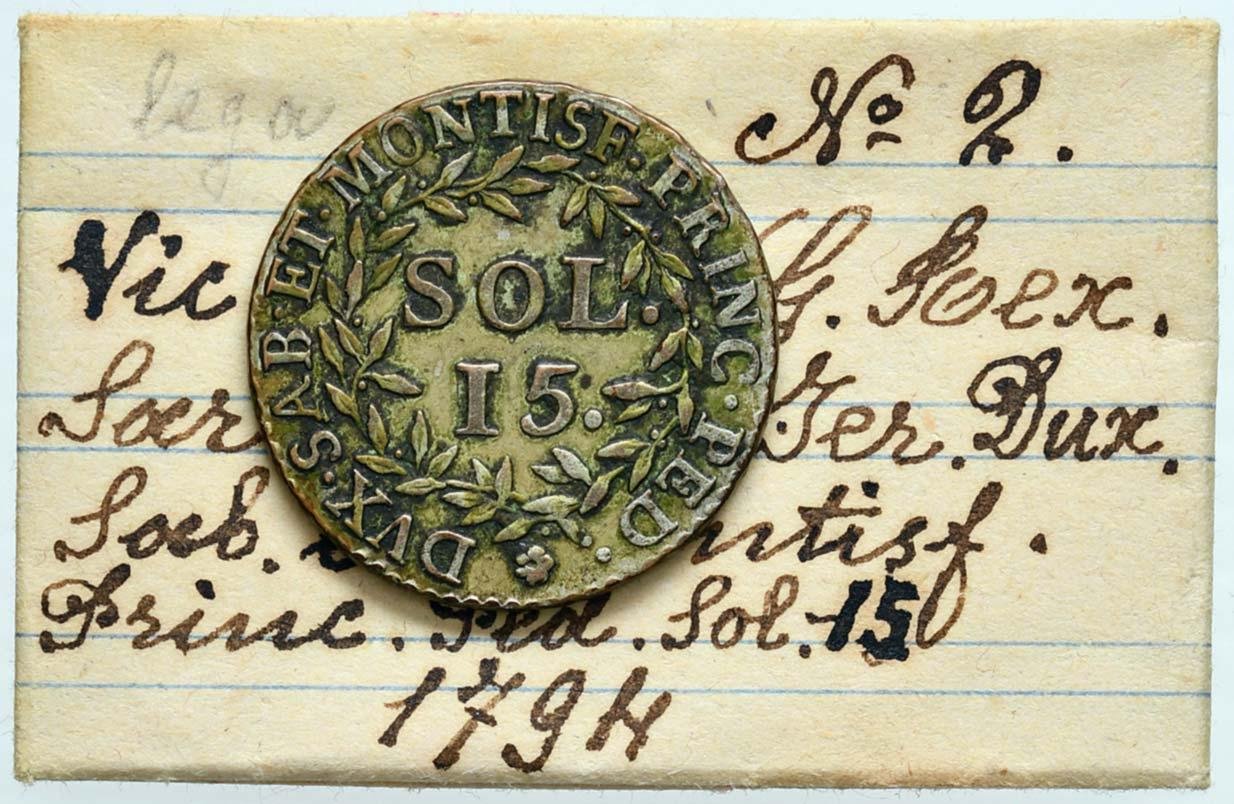 lega
No 2.
Vic G. Rex.
Sar Ier. Dux.
Sab. ntisf.
Princ. Ped. Sol. 15
1794
DVX. SAB. ET. MONTISF. PRINC. PED.
SOL.
15.